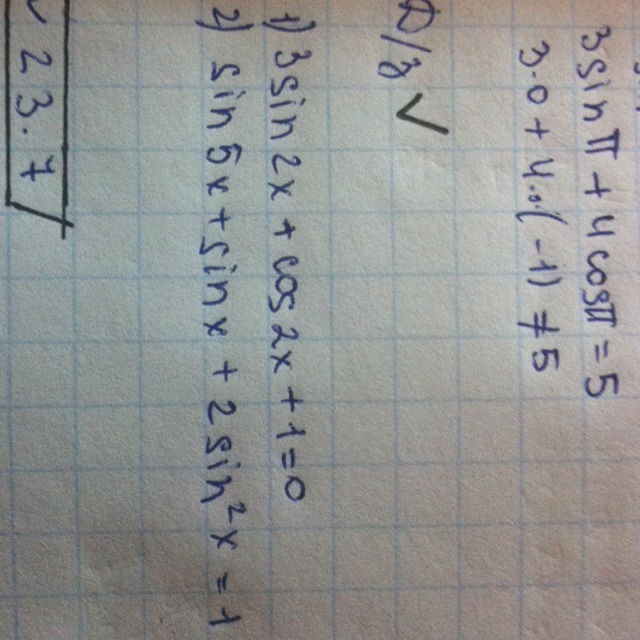 3sinπ + 4cosπ = 5
3·0 + 4·(-1) ≠ 5
D/з
1) 3sin2x + cos2x + 1 = 0
2) sin5x + sinx + 2sin²x = 1
23.7